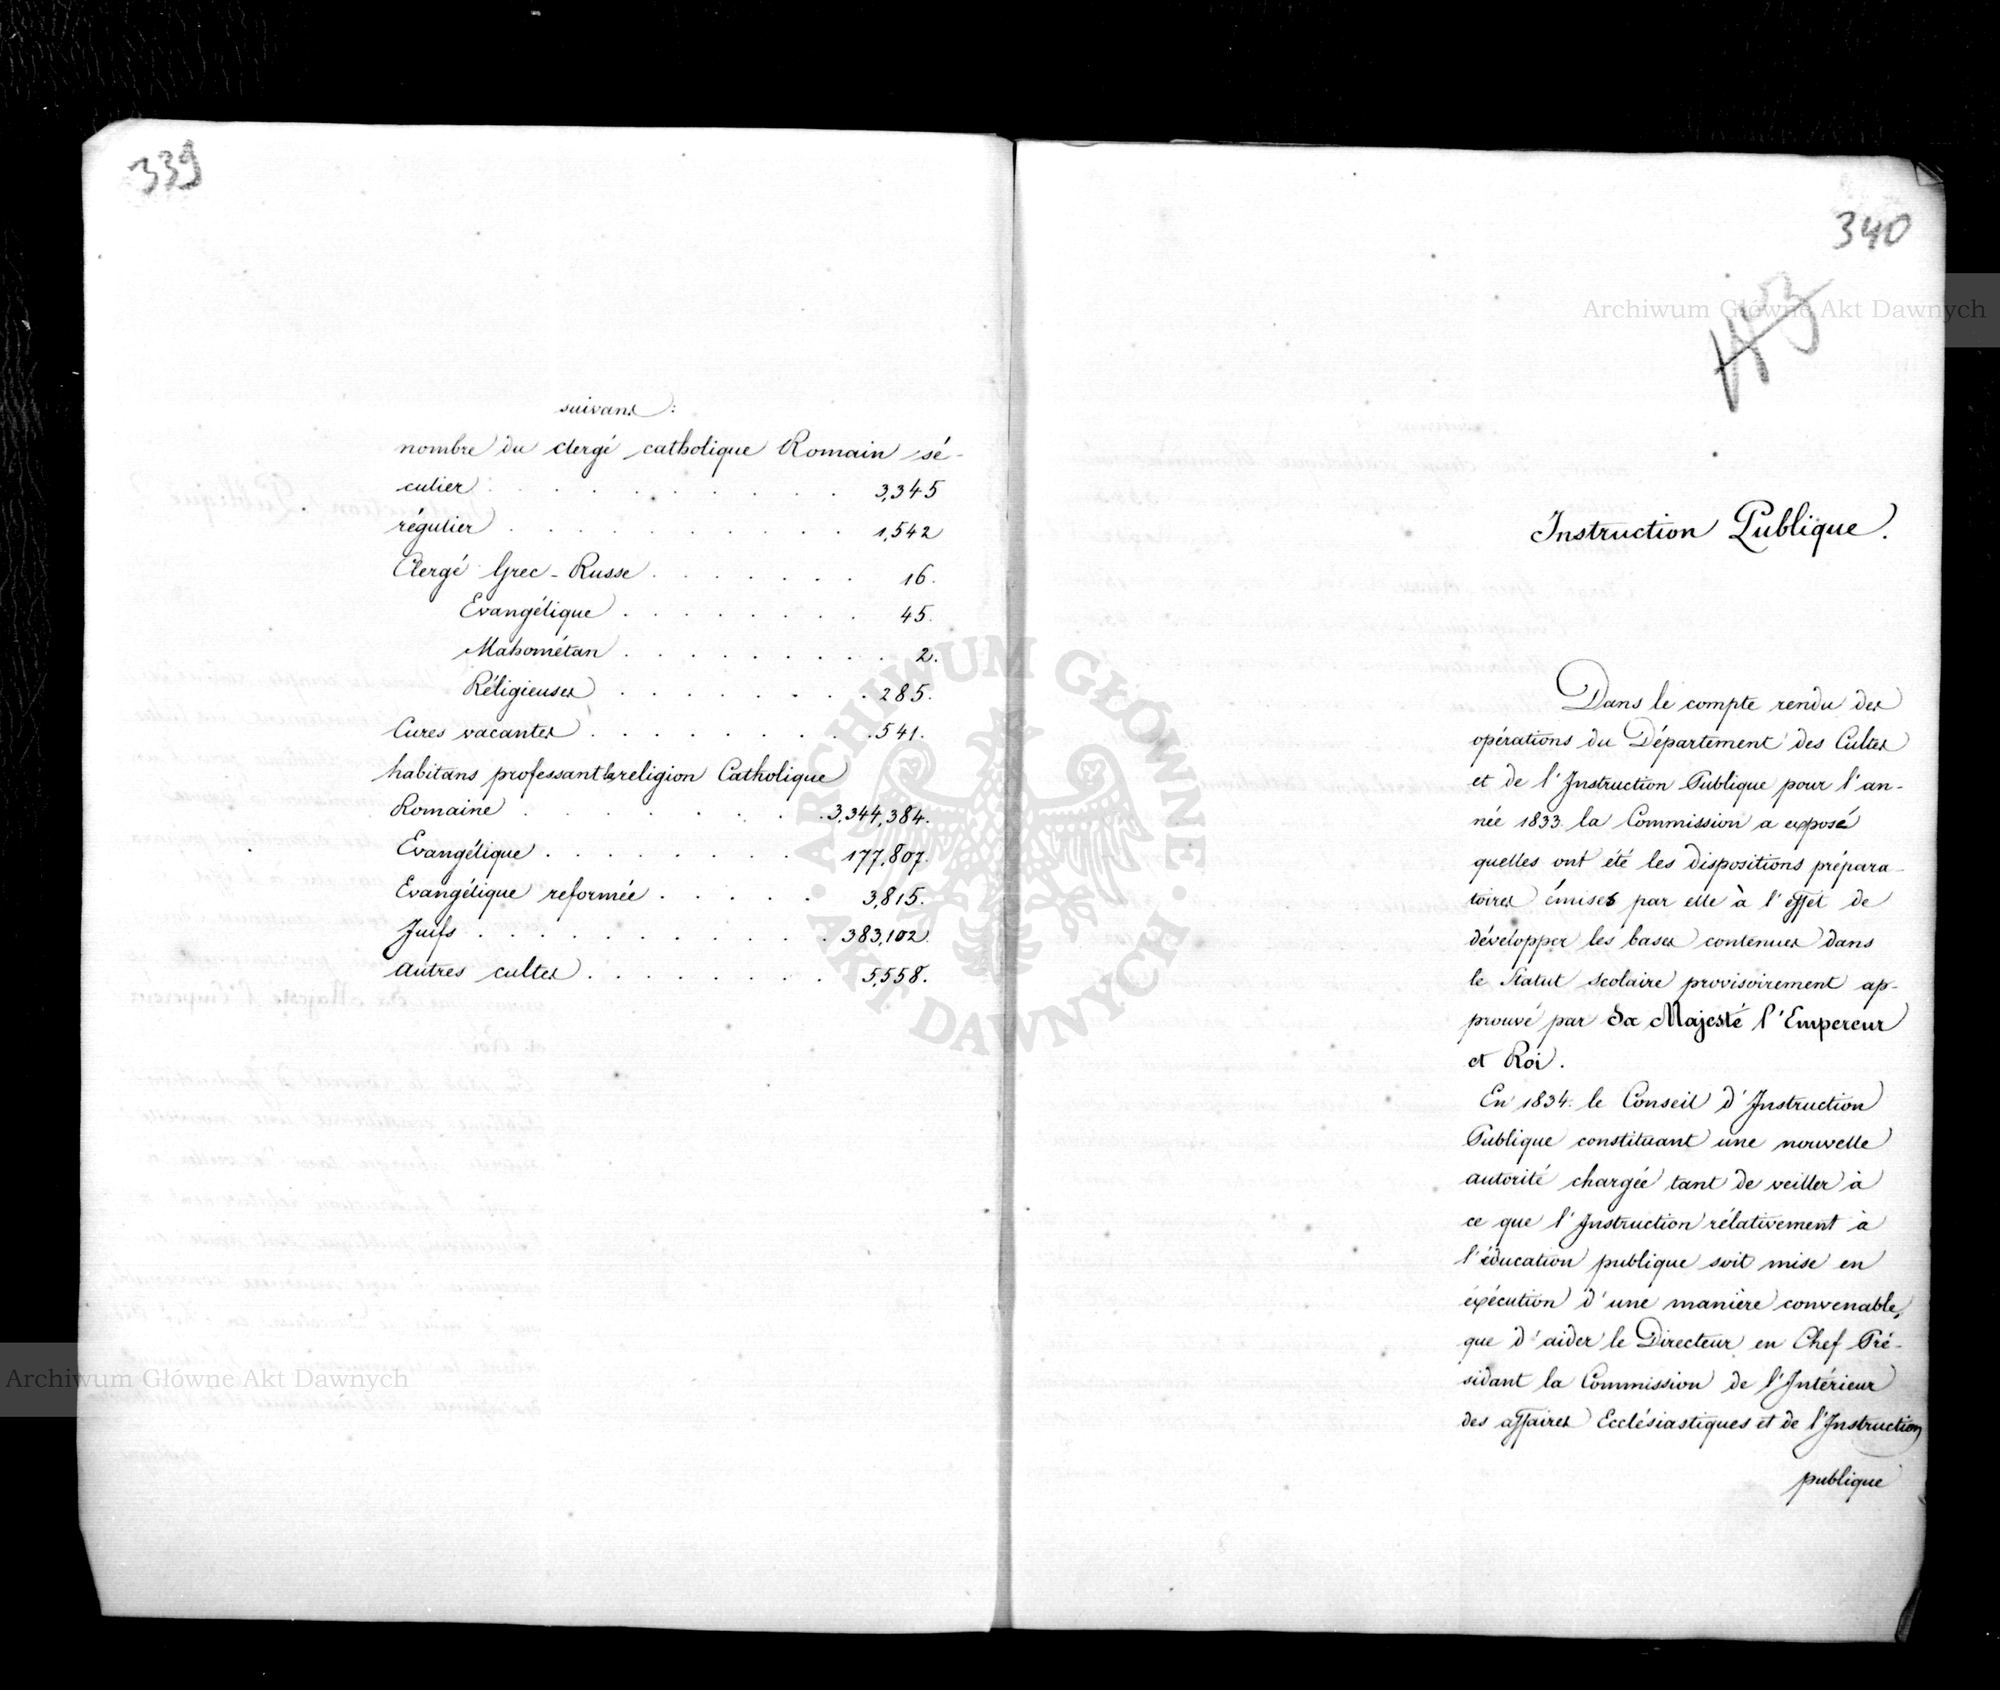 339
suivans:
nombre du clergé catholique Romain sé-
culier . . . . . . . . . . 3,345
régulier . . . . . . . . . . 1,542
Clergé Grec-Russe . . . . . . . 16.
Evangélique . . . . . . . . 45.
Mahométan . . . . . . . . . 2.
Réligieuses . . . . . . . . 285.
Cures vacantes . . . . . . . . 541.
habitans professant la religion Catholique
Romaine . . . . . . . . 3,344,384.
Evangélique . . . . . . . 177,807.
Evangélique reformée . . . . . 3,815.
Juifs . . . . . . . . . . 383,102.
autres cultes . . . . . . . 5,558.
340
Instruction Publique.
Dans le compte rendu des
opérations du Département des Cultes
et de l'Instruction Publique pour l'an-
née 1833. la Commission a exposé
quelles ont été les dispositions prépara-
toires émises par elle à l'effet de
développer les bases contenues dans
le Statut scolaire provisoirement ap-
prouvé par Sa Majesté l'Empereur
et Roi.
En 1834. le Conseil d'Instruction
Publique constituant une nouvelle
autorité chargée tant de veiller à
ce que l'Instruction rélativement à
l'éducation publique soit mise en
éxécution d'une manière convenable,
que d'aider le Directeur en Chef Pré-
sidant la Commission de l'Intérieur
des affaires Ecclésiastiques et de l'Instruction
publique
Archiwum Główne Akt Dawnych
ARCHIWUM GŁÓWNE
AKT DAWNYCH
Archiwum Główne Akt Dawnych